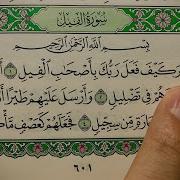 سُورَةُ الفِيلِ
بِسْمِ اللَّهِ الرَّحْمَٰنِ الرَّحِيمِ
كَيْفَ فَعَلَ رَبُّكَ بِأَصْحَٰبِ الْفِيلِ ١
هُمْ فِي تَضْلِيلٍ ٢ وَأَرْسَلَ عَلَيْهِمْ طَيْرًا
مِّن سِجِّيلٍ ٤ فَجَعَلَهُمْ كَعَصْفٍ
٦٠١